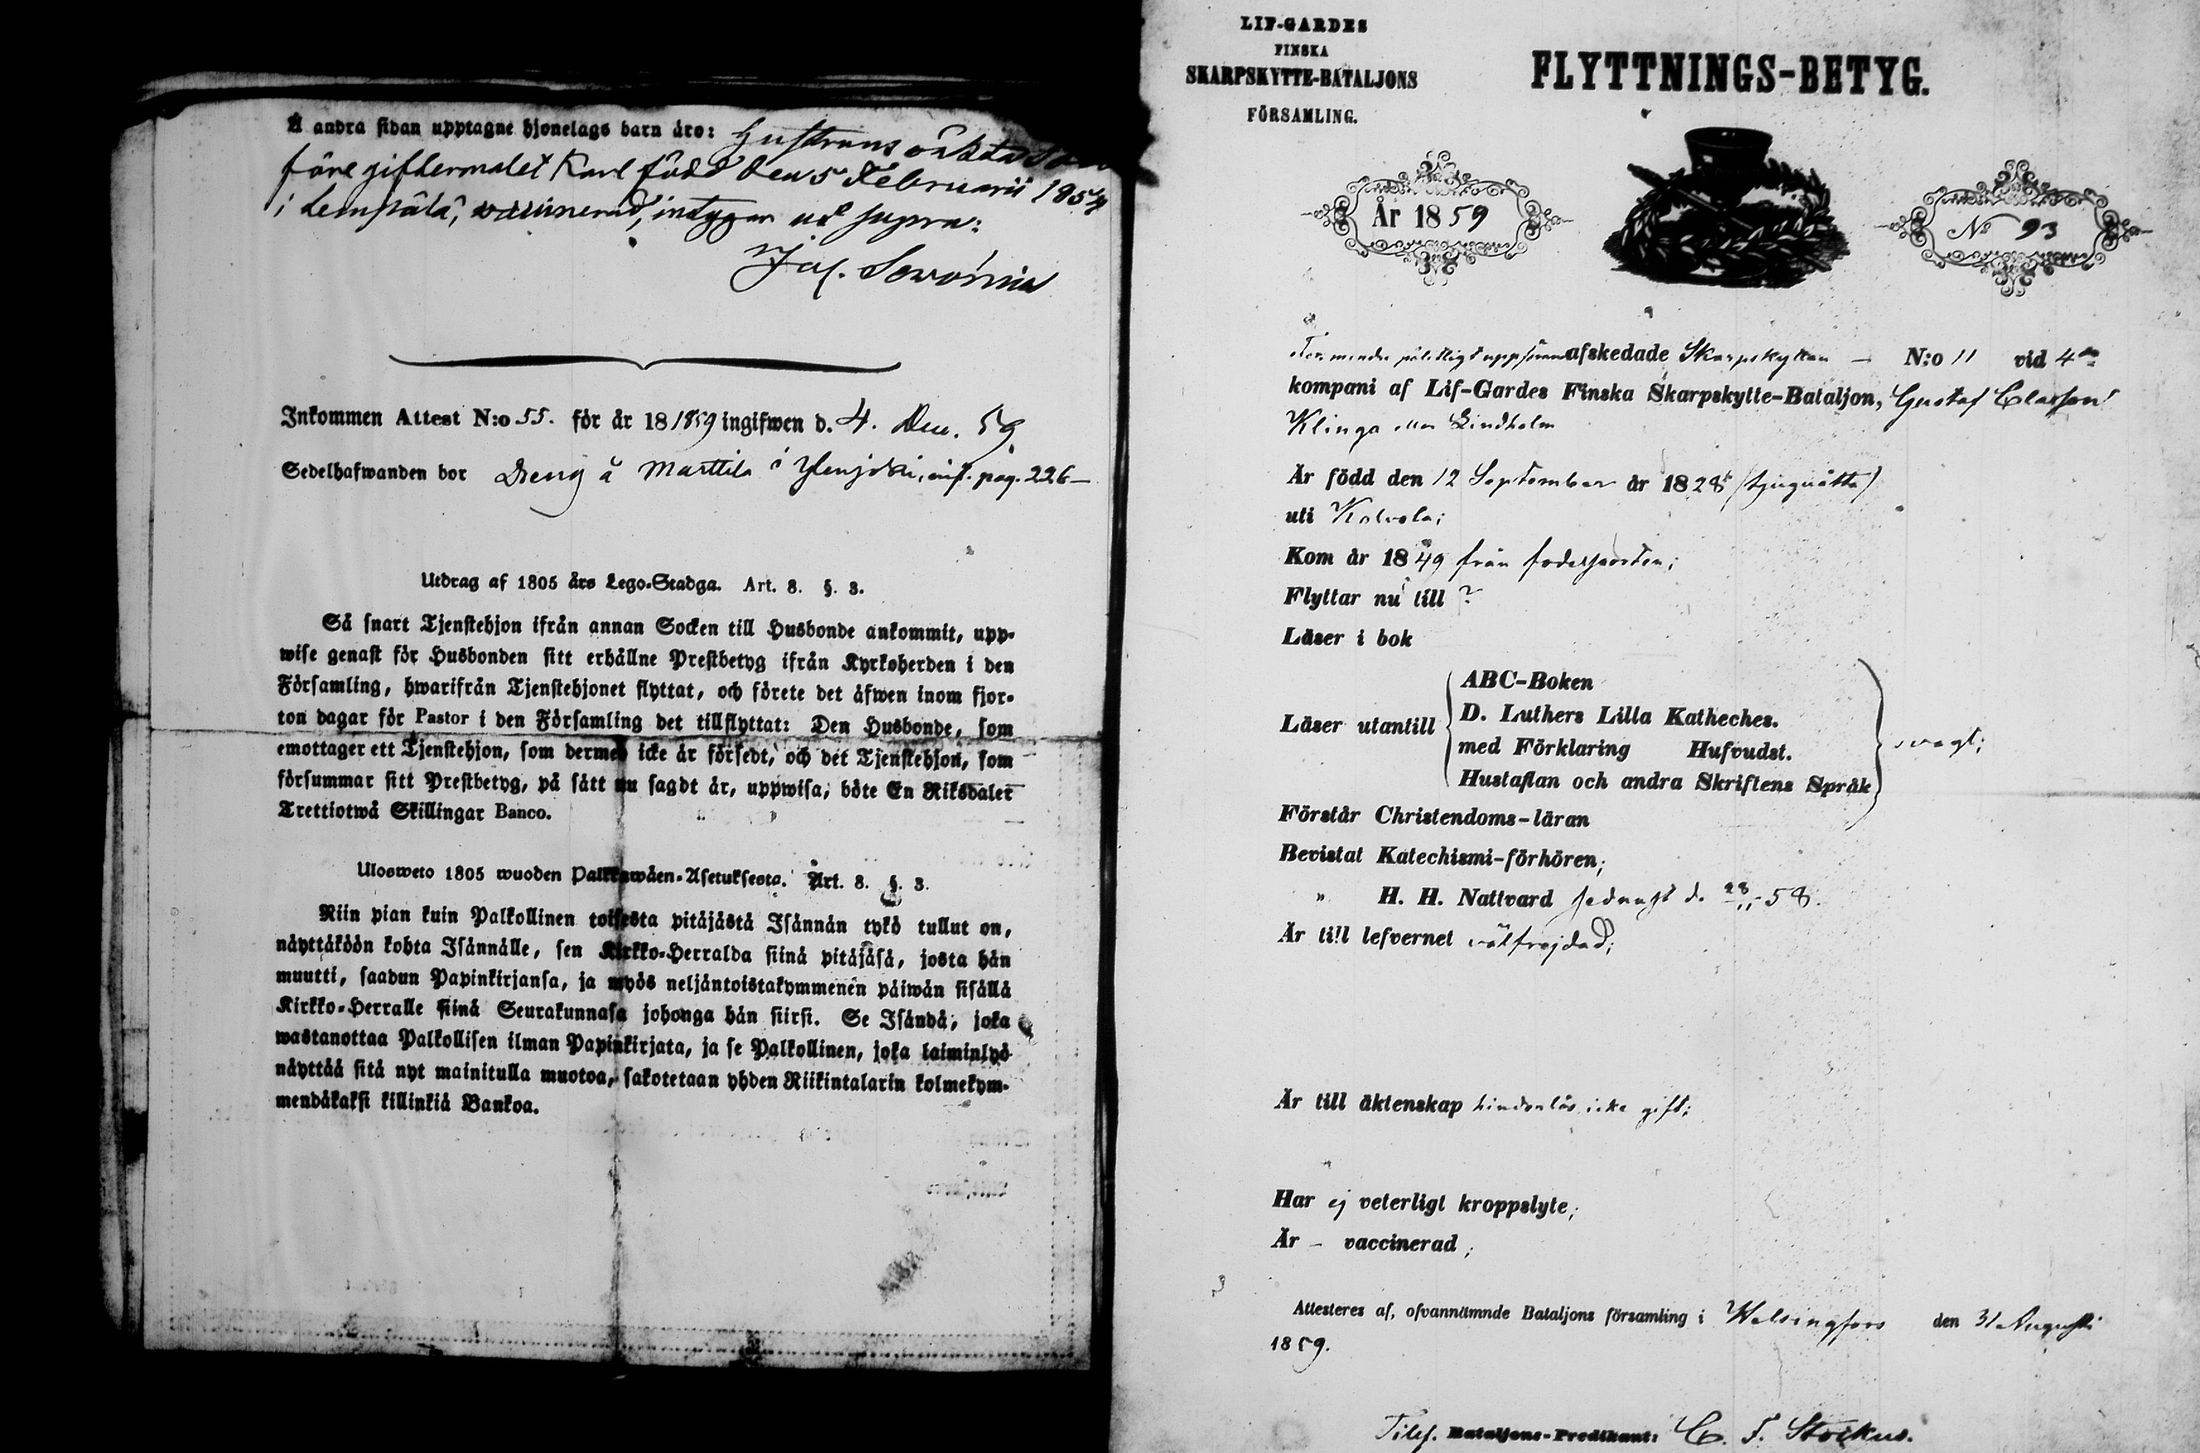 Å andra sidan upptagne hjonelags barn äro: Hustruns oäkta
före giftermålet Karl född den 5 Februarii 1854
i Lempälä, vaccinerad, intygar ut supra:
Inkommen Attest N:o 55. för år 18 1859 ingifwen d. 4. Dec. 59
Sedelhafwanden bor Dreng å Marttila i Ylenjoki, inf. pag. 226
Utdrag af 1805 års Lego-Stadga. Art. 8. §. 3.
Så snart Tjenstehjon ifrån annan Socken till Husbonde ankommit, upp-
wise genast för Husbonden sitt erhållne Prestbetyg ifrån Kyrkoherden i den
Församling, hwarifrån Tjenstehjonet flyttat, och förete det äfwen inom fjor-
ton dagar för Pastor i den Församling det tillflyttat: Den Husbonde, som
emottager ett Tjenstehjon, som dermed icke är försedt, och det Tjenstehjon, som
försummar sitt Prestbetyg, på sätt nu sagdt är, uppwisa, böte En Riksdaler
Trettiotwå Skillingar Banco.
Ulosweto 1805 wuoden Palkkawäen-Asetuksesta. Art. 8. §. 3.
Niin pian kuin Palkollinen toisesta pitäjästä Isännän tykö tullut on,
näyttäköön kohta Isännälle, sen Kirkko-Herralda siinä pitäjäsä, josta hän
muutti, saadun Papinkirjansa, ja myös neljäntoistakymmenen päiwän sisällä
Kirkko-Herralle siinä Seurakunnasa johonga hän siirsi. Se Isändä, joka
wastanottaa Palkollisen ilman Papinkirjata, ja se Palkollinen, joka laiminlyö
näyttää sitä nyt mainitulla muotoa, sakotetaan yhden Riikintalarin kolmekym-
mendäkaksi killinkiä Bankoa.
LIF-GARDES
FINSKA
SKARPSKYTTE-BATALJONS
FÖRSAMLING.
FLYTTNINGS-BETYG.
År 1859
No 93
För mindre pålitligt uppförande afskedade Skarpskytten — N:o 11 vid 4de
kompani af Lif-Gardes Finska Skarpskytte-Bataljon, Gustaf Classon
Klinga eller Lindholm
Är född den 12 September år 1828 (tjuguåtta)
uti Kalvola;
Kom år 1849 från födelseorten;
Flyttar nu till ?
Läser i bok
Läser utantill
ABC-Boken
D. Luthers Lilla Katheches.
med Förklaring Hufvudst.
Hustaflan och andra Skriftens Språk
svagt;
Förstår Christendoms-läran
Bevistat Katechismi-förhören;
" H. H. Nattvard sednast d. 28/11 58.
Är till lefvernet välfrejdad;
Är till äktenskap hinderlös, icke gift;
Har ej veterligt kroppslyte;
Är – vaccinerad;
Attesteres af, ofvannämnde Bataljons församling i Helsingfors den 31 Augusti
1859.
Tilf. Bataljons-Predikant: C. F. Stockus.